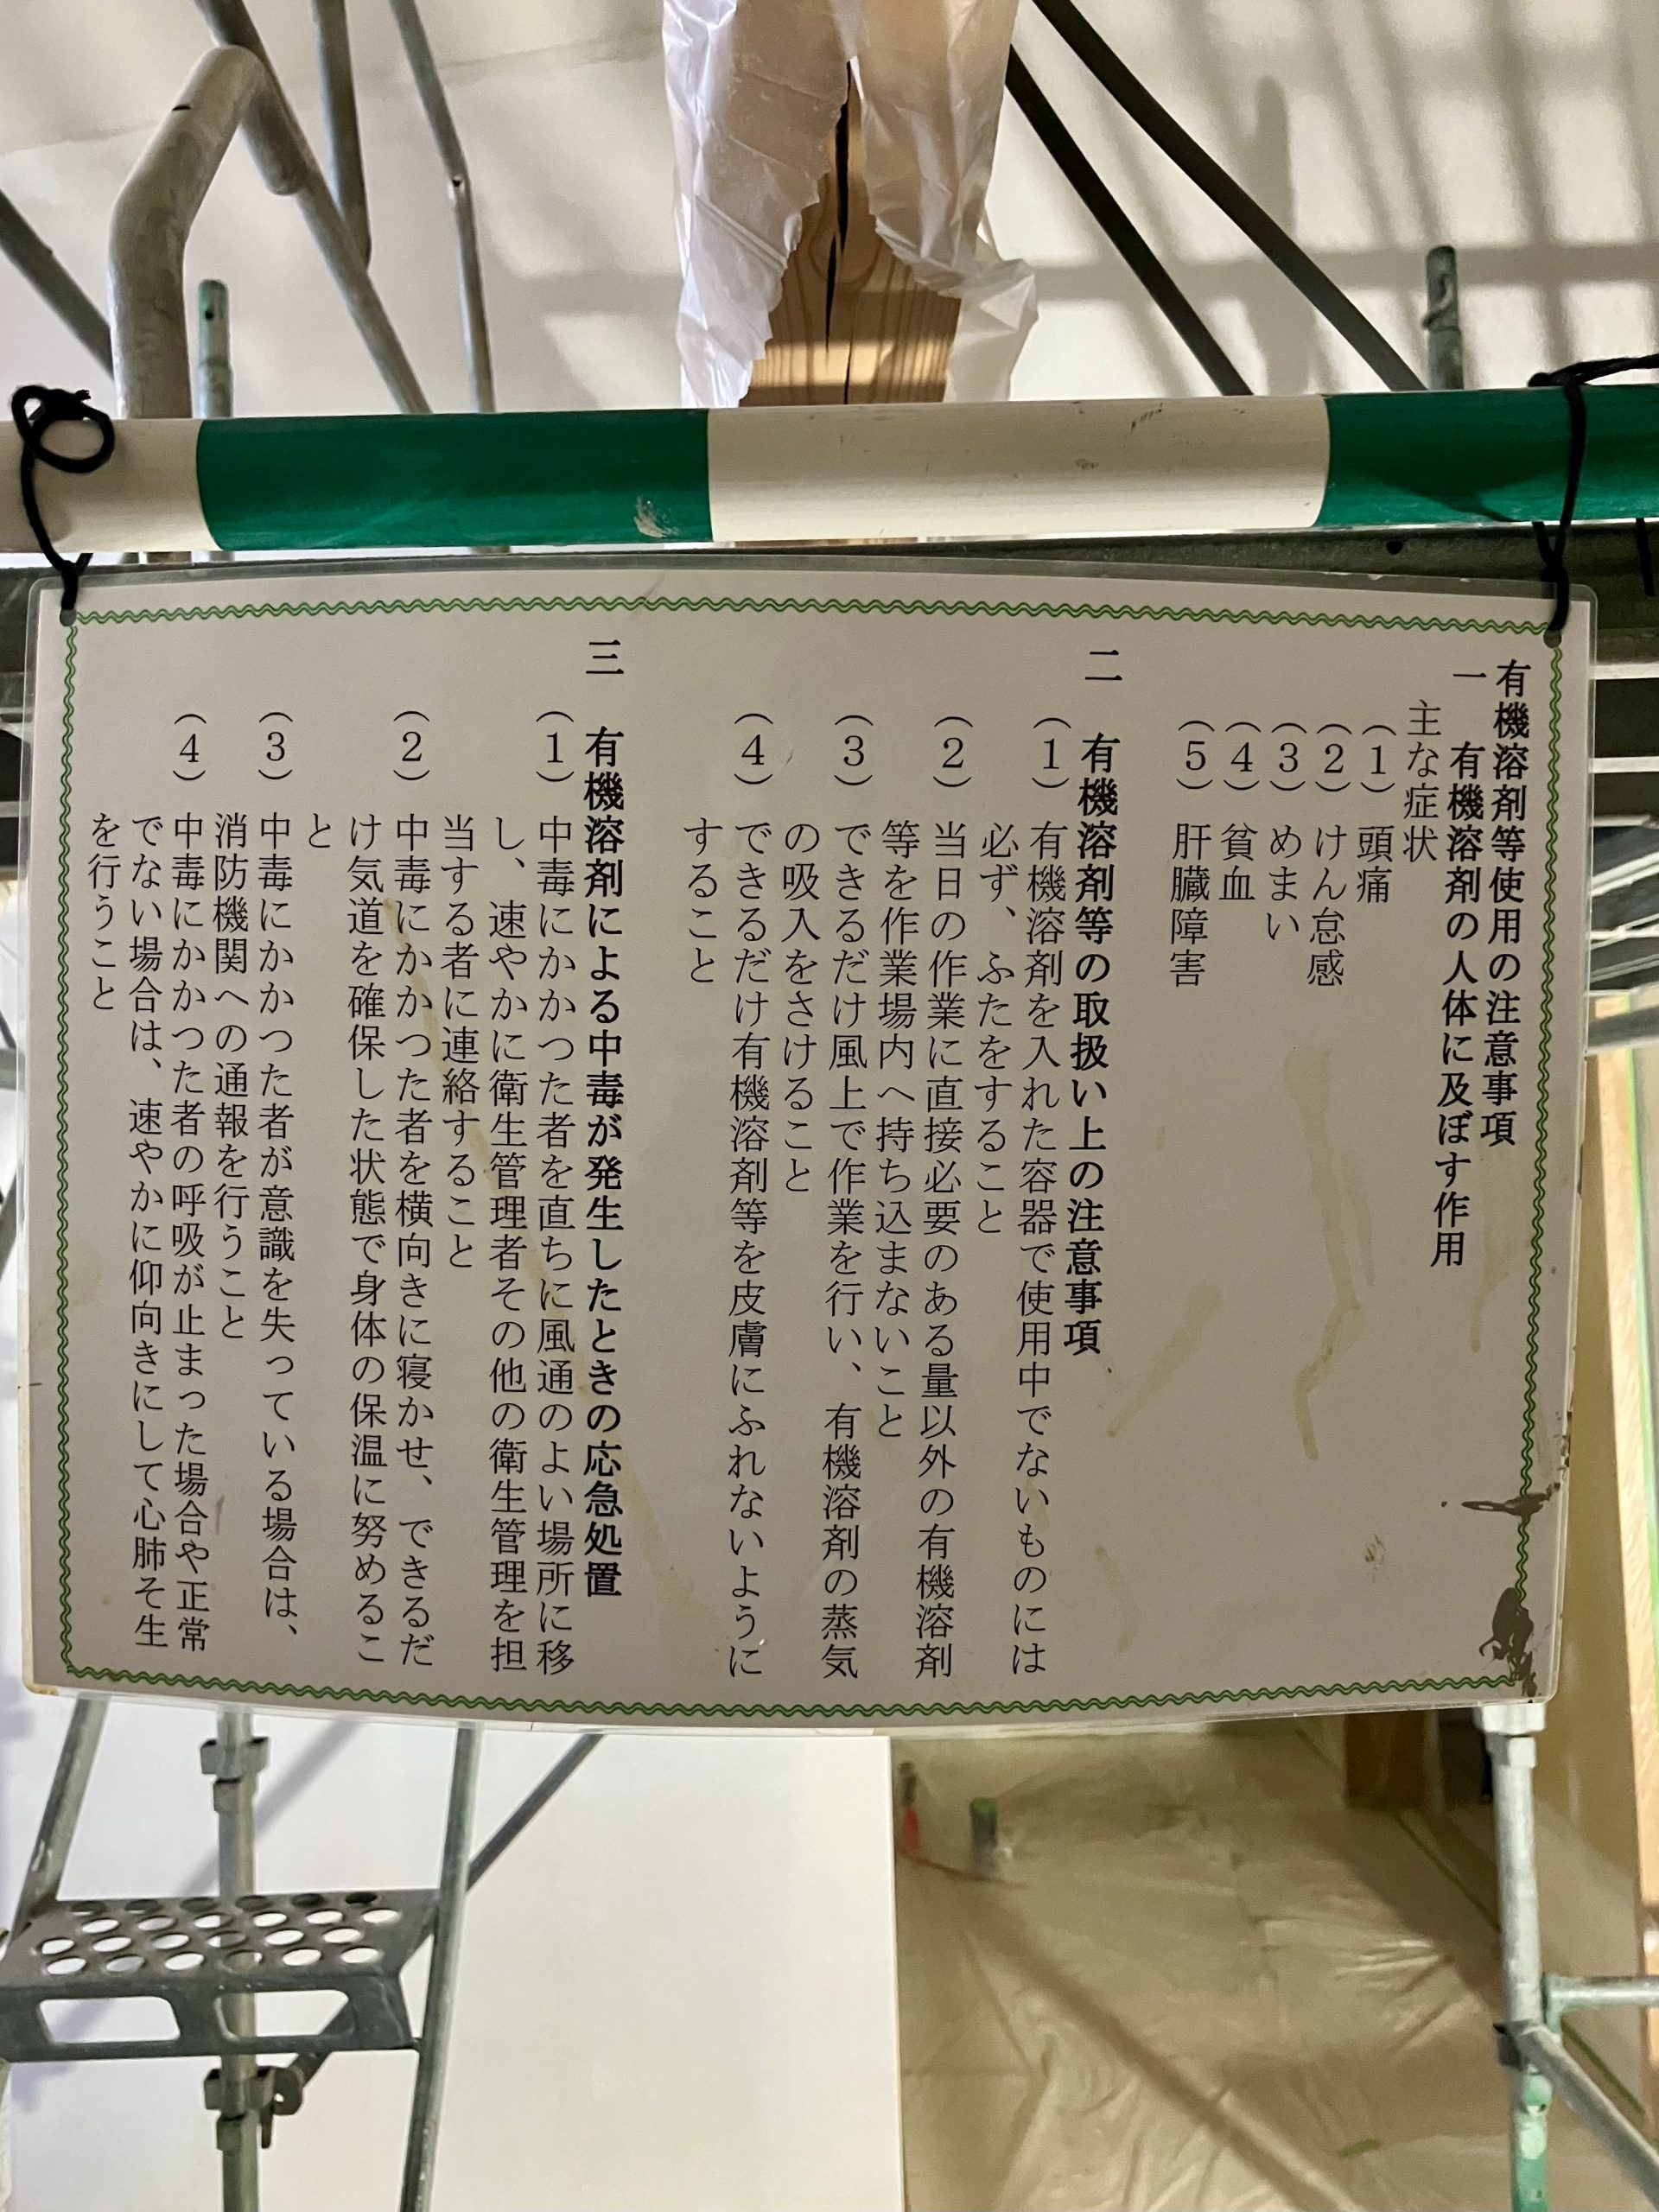 有機溶剤等使用の注意事項
一　有機溶剤の人体に及ぼす作用
主な症状
（１）　頭痛
（２）　けん怠感
（３）　めまい
（４）　貧血
（５）　肝臓障害
二　有機溶剤等の取扱い上の注意事項
（１）　有機溶剤を入れた容器で使用中でないものには
必ず、ふたをすること
（２）　当日の作業に直接必要のある量以外の有機溶剤
等を作業場内へ持ち込まないこと
（３）　できるだけ風上で作業を行い、有機溶剤の蒸気
の吸入をさけること
（４）　できるだけ有機溶剤等を皮膚にふれないように
すること
三　有機溶剤による中毒が発生したときの応急処置
（１）　中毒にかかつた者を直ちに風通のよい場所に移
し、速やかに衛生管理者その他の衛生管理を担
当する者に連絡すること
（２）　中毒にかかつた者を横向きに寝かせ、できるだ
け気道を確保した状態で身体の保温に努めるこ
と
（３）　中毒にかかつた者が意識を失っている場合は、
消防機関への通報を行うこと
（４）　中毒にかかつた者の呼吸が止まった場合や正常
でない場合は、速やかに仰向きにして心肺そ生
を行うこと